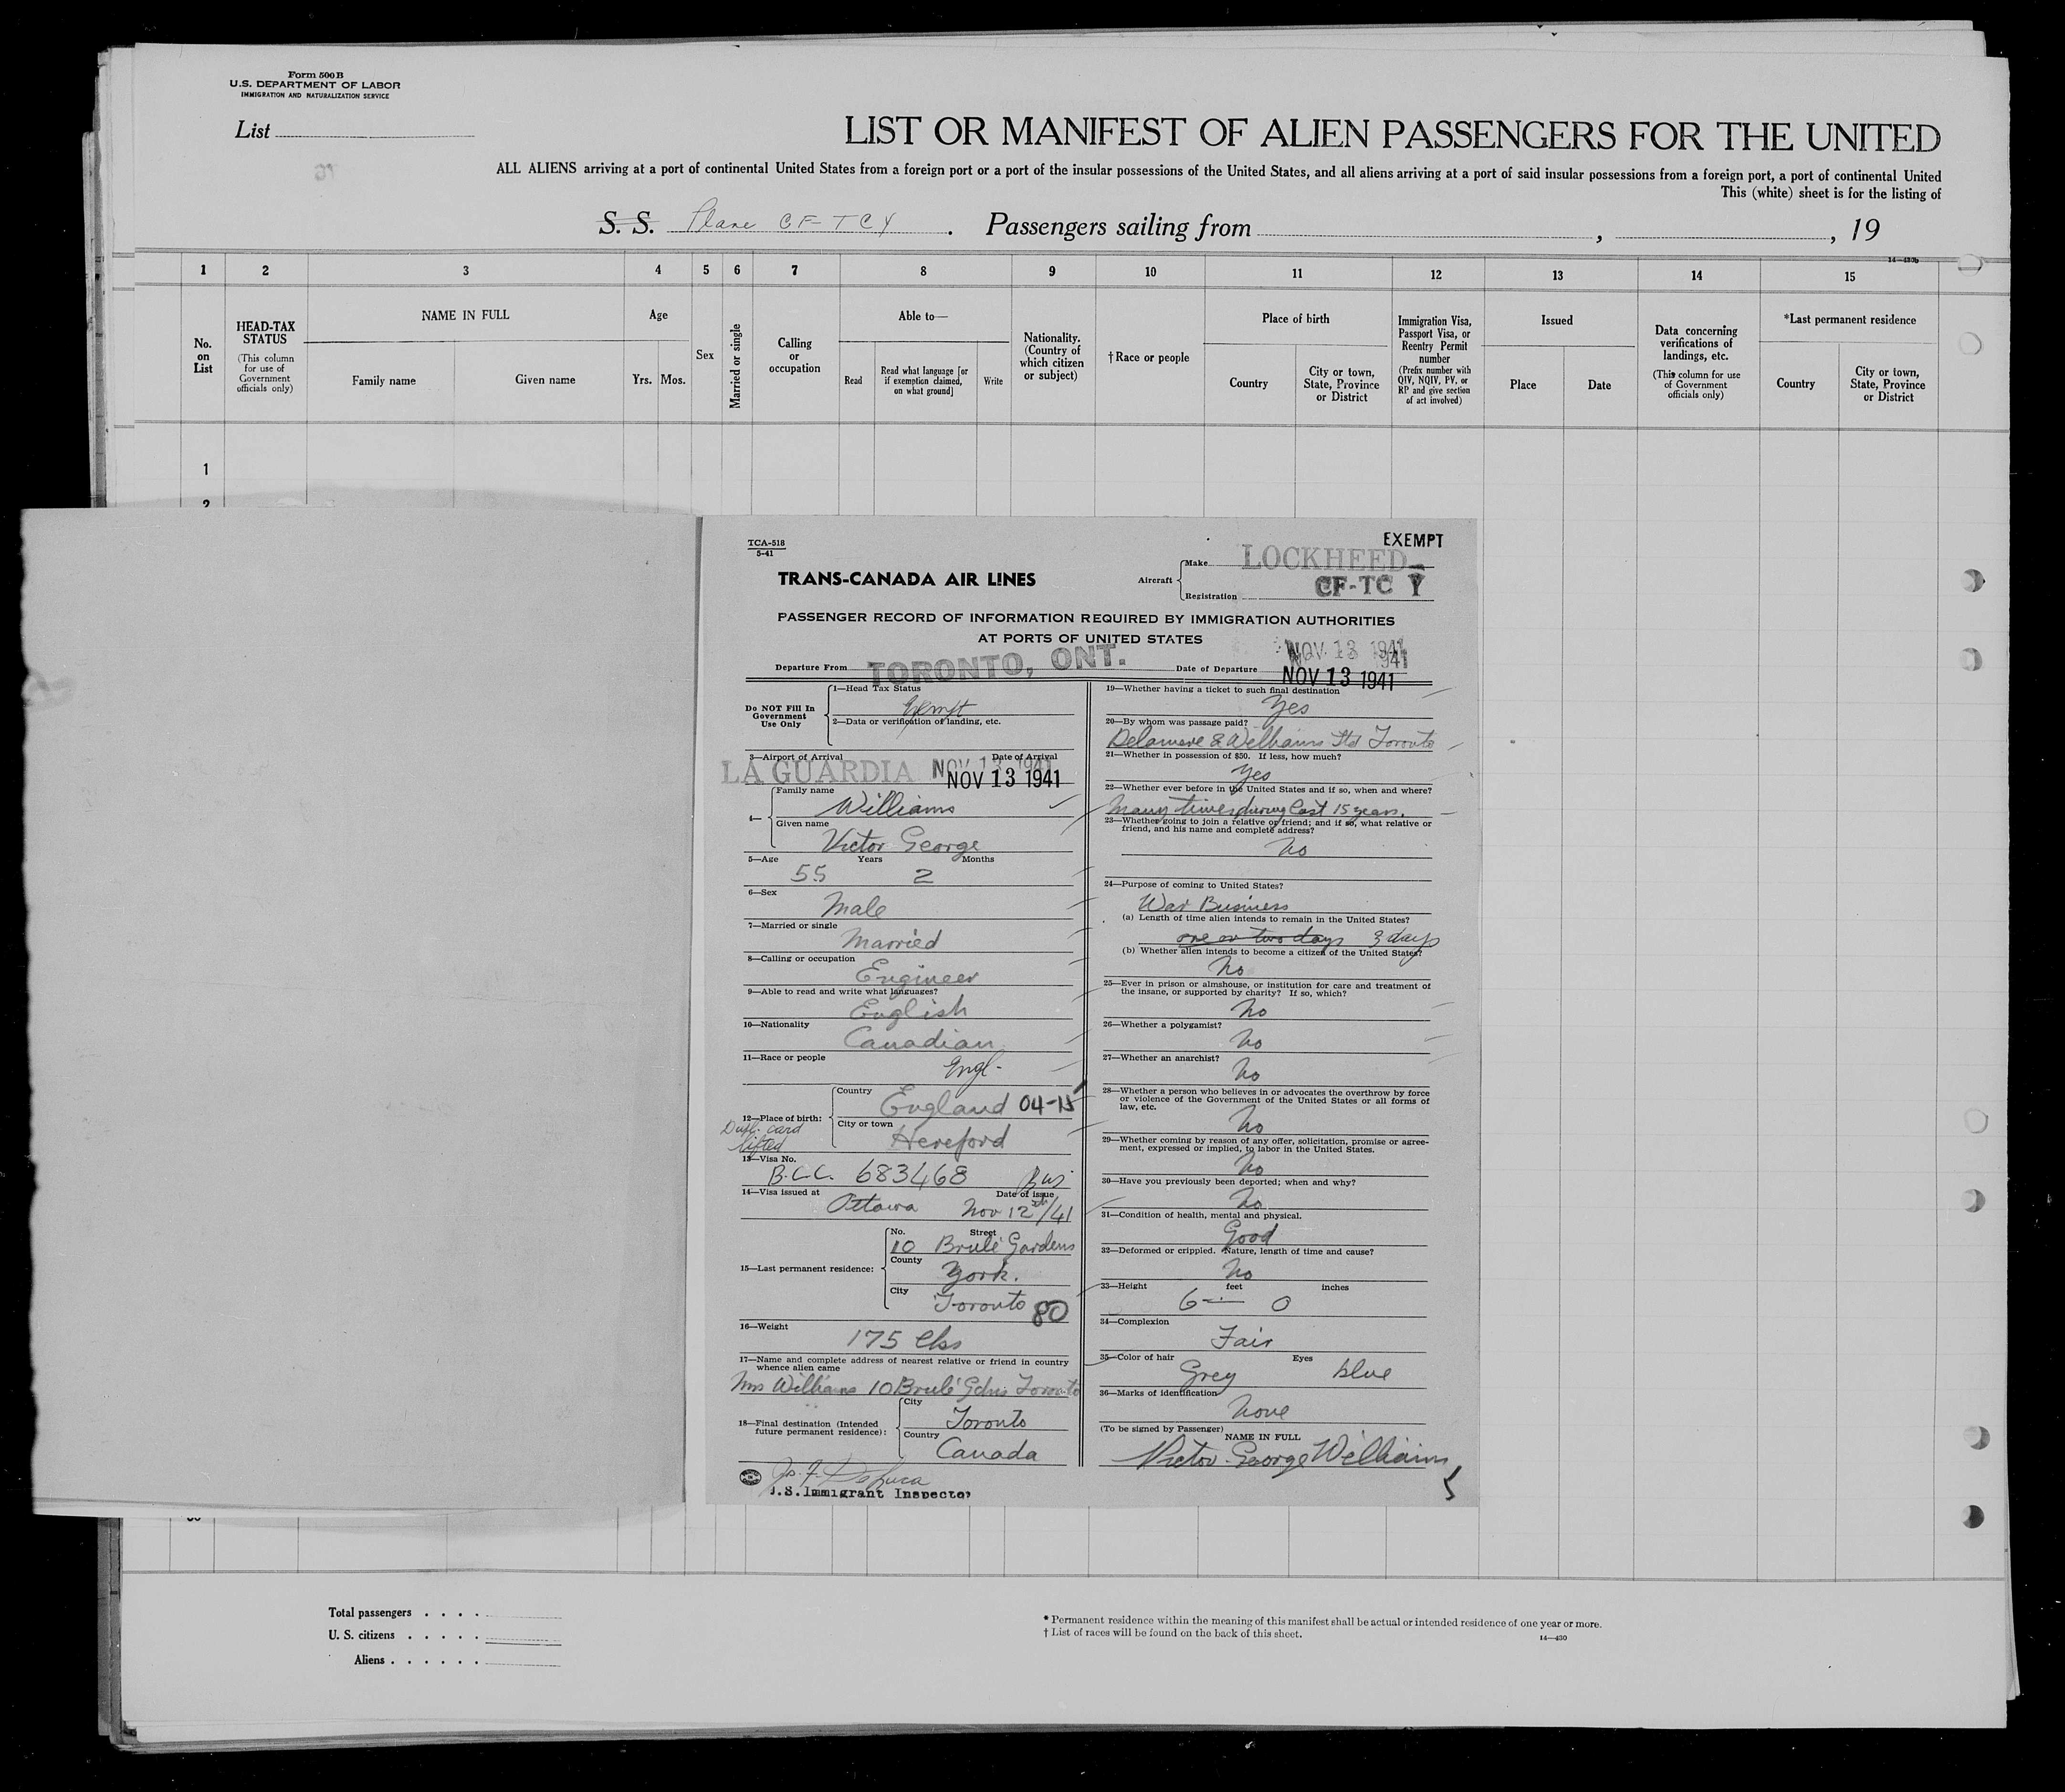 Form 500 B
U.S. DEPARTMENT OF LABOR
IMMIGRATION AND NATURALIZATION SERVICE
List
LIST OR MANIFEST OF ALIEN PASSENGERS FOR THE UNITED
ALL ALIENS arriving at a port of continental United States from a foreign port or a port of the insular possessions of the United States, and all aliens arriving at a port of said insular possessions from a foreign port, a port of continental United
This (white) sheet is for the listing of
S. S. Plane CF-TCY. Passengers sailing from , , 19
14—430b
1 2 3 4 5 6 7 8 9 10 11 12 13 14 15
No. on List
HEAD-TAX STATUS
(This column for use of Government officials only)
NAME IN FULL
Family name
Given name
Age
Yrs. Mos.
Sex
Married or single
Calling or occupation
Able to—
Read
Read what language [or if exemption claimed, on what ground]
Write
Nationality. (Country of which citizen or subject)
†Race or people
Place of birth
Country
City or town, State, Province or District
Immigration Visa, Passport Visa, or Reentry Permit number
(Prefix number with QIV, NQIV, PV, or RP and give section of act involved)
Issued
Place
Date
Data concerning verifications of landings, etc.
(This column for use of Government officials only)
*Last permanent residence
Country
City or town, State, Province or District
1
2
TCA-518
5-41
EXEMPT
TRANS-CANADA AIR LINES
Aircraft
Make LOCKHEED
Registration CF-TC Y
PASSENGER RECORD OF INFORMATION REQUIRED BY IMMIGRATION AUTHORITIES
AT PORTS OF UNITED STATES
Departure From TORONTO, ONT. Date of Departure NOV 13 1941
NOV 13 1941
Do NOT Fill In Government Use Only
1—Head Tax Status
Exempt
2—Data or verification of landing, etc.
3—Airport of Arrival Date of Arrival
LA GUARDIA NOV 13 1941
NOV 13 1941
4—
Family name
Williams
Given name
Victor George
5—Age Years Months
55 2
6—Sex
Male
7—Married or single
Married
8—Calling or occupation
Engineer
9—Able to read and write what languages?
English
10—Nationality
Canadian
11—Race or people
Engl.
12—Place of birth:
Country
England 04-15
City or town
Hereford
Dupl. card
lifted
13—Visa No.
B.C.C. 683468 Bus
14—Visa issued at Date of issue
Ottawa Nov 12th/41
15—Last permanent residence:
No. Street
10 Brulé Gardens
County
York.
City
Toronto 80
16—Weight
175 lbs
17—Name and complete address of nearest relative or friend in country
whence alien came
Mrs Williams 10 Brulé Gdns Toronto
18—Final destination (Intended
future permanent residence):
City
Toronto
Country
Canada
U.S. Immigrant Inspector
19—Whether having a ticket to such final destination
Yes
20—By whom was passage paid?
Delamere & Williams Ltd Toronto
21—Whether in possession of $50. If less, how much?
Yes
22—Whether ever before in the United States and if so, when and where?
Many times during last 15 years.
23—Whether going to join a relative or friend; and if so, what relative or
friend, and his name and complete address?
No
24—Purpose of coming to United States?
War Business
(a) Length of time alien intends to remain in the United States?
one or two days 3 days
(b) Whether alien intends to become a citizen of the United States?
No
25—Ever in prison or almshouse, or institution for care and treatment of
the insane, or supported by charity? If so, which?
No
26—Whether a polygamist?
No
27—Whether an anarchist?
No
28—Whether a person who believes in or advocates the overthrow by force
or violence of the Government of the United States or all forms of
law, etc.
No
29—Whether coming by reason of any offer, solicitation, promise or agree-
ment, expressed or implied, to labor in the United States.
No
30—Have you previously been deported; when and why?
No
31—Condition of health, mental and physical.
Good
32—Deformed or crippled. Nature, length of time and cause?
No
33—Height feet inches
6 — 0
34—Complexion
Fair
35—Color of hair Eyes
Grey blue
36—Marks of identification
None
(To be signed by Passenger)
NAME IN FULL
Victor George Williams
5
Total passengers . . . .
U. S. citizens . . . . .
Aliens . . . . . .
* Permanent residence within the meaning of this manifest shall be actual or intended residence of one year or more.
† List of races will be found on the back of this sheet.
14—430